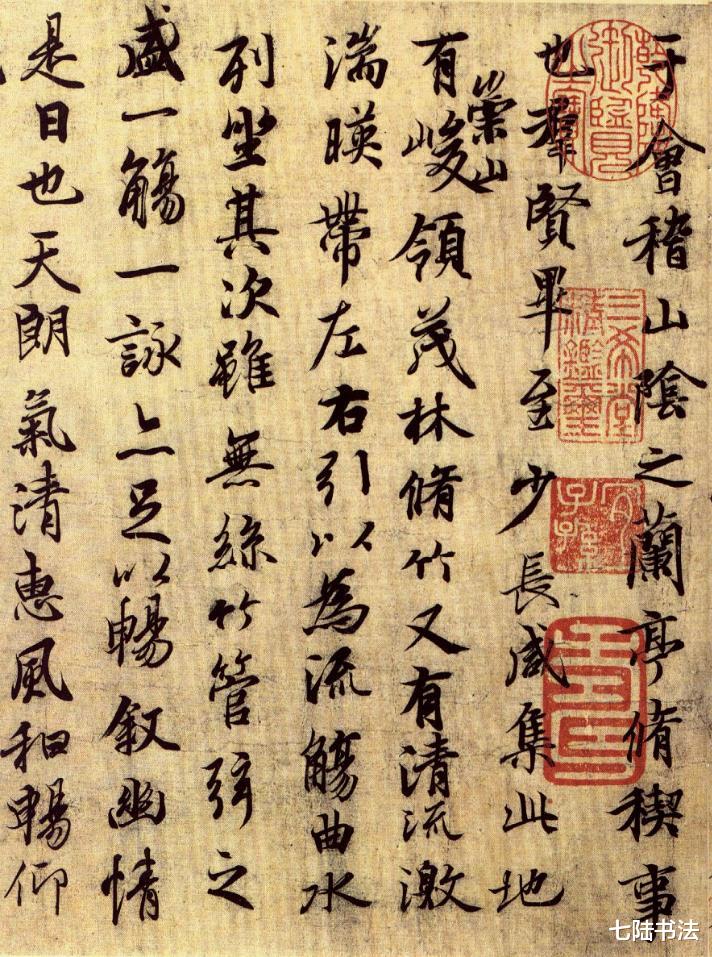 于會稽山陰之蘭亭脩稧事
也羣賢畢至少長咸集此地
有崇山峻領茂林脩竹又有清流激
湍暎帶左右引以為流觴曲水
列坐其次雖無絲竹管弦之
盛一觴一詠亦足以暢叙幽情
是日也天朗氣清惠風和暢仰
乾隆御覽之寶
三希堂精鑑璽
宜子孫
七陆书法